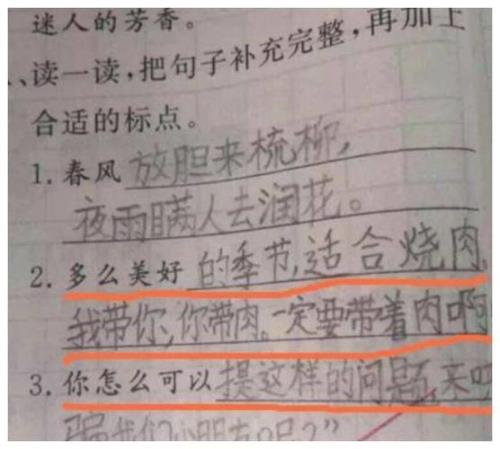 迷人的芳香。
、读一读,把句子补充完整,再加上
合适的标点。
1.春风放胆来梳柳,
夜雨瞒人去润花。
2.多么美好的季节,适合烧肉,
我带你,你带肉。一定要带着肉啊
3.你怎么可以提这样的问题,来
骗我们小朋友呢?”